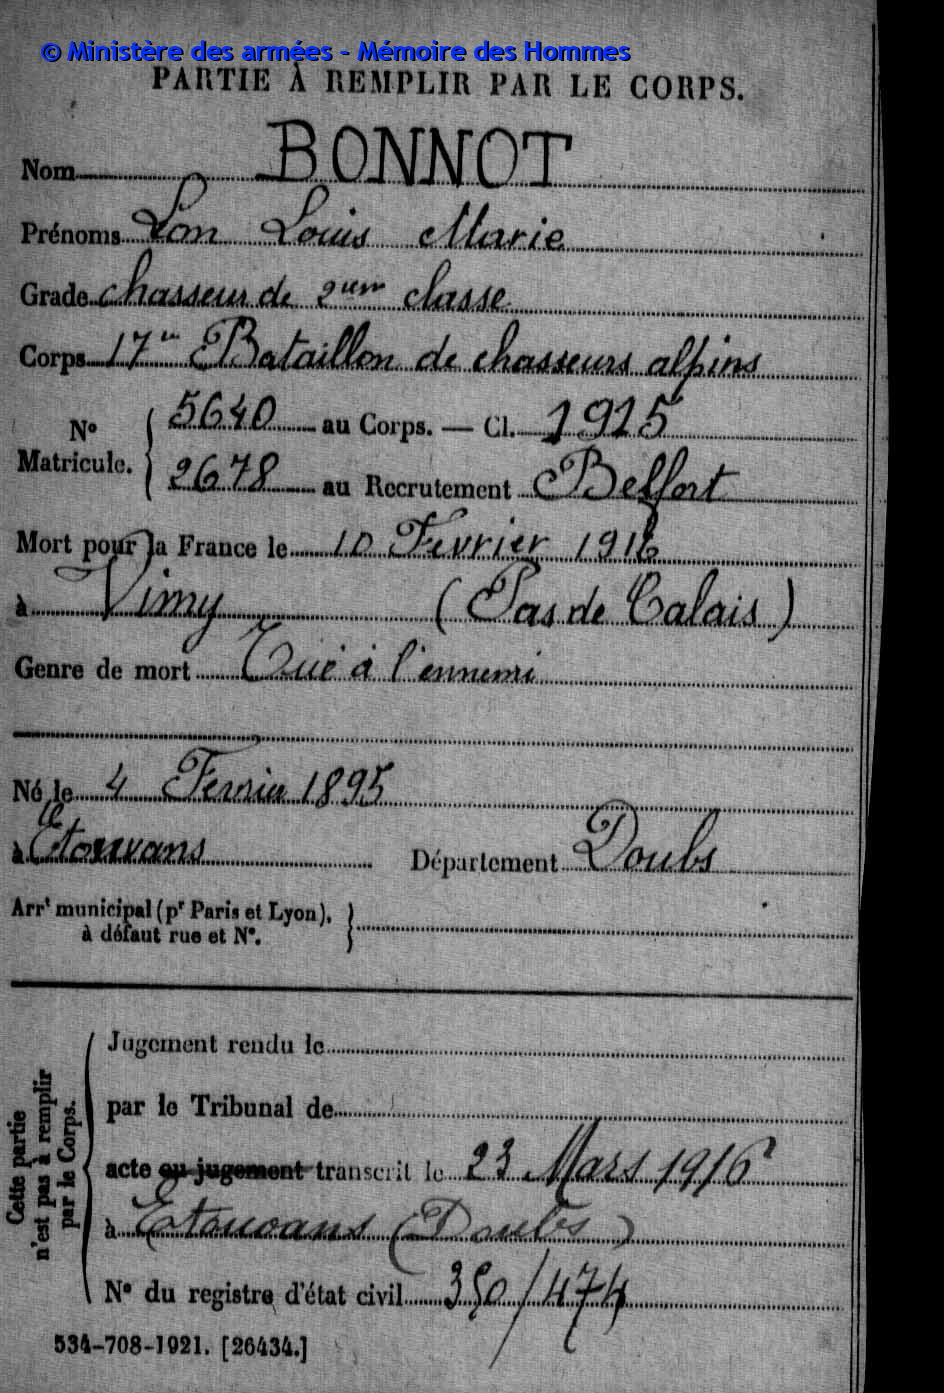 © Ministère des armées - Mémoire des Hommes
PARTIE À REMPLIR PAR LE CORPS.
Nom BONNOT
Prénoms Léon Louis Marie
Grade chasseur de 2em classe
Corps 17e Bataillon de chasseurs alpins
No Matricule. { 5640 au Corps. — Cl. 1915
2678 au Recrutement Belfort
Mort pour la France le 10 Fevrier 1916
à Vimy (Pas de Calais)
Genre de mort Tué à l'ennemi
Né le 4 Fevrier 1895
à Etouvans Département Doubs
Arrt municipal (pr Paris et Lyon), }
à défaut rue et No.
Cette partie n'est pas à remplir par le Corps.
Jugement rendu le
par le Tribunal de
acte ou jugement transcrit le 23 Mars 1916
à Etouvans (Doubs)
No du registre d'état civil 350/474
534-708-1921. [26434.]